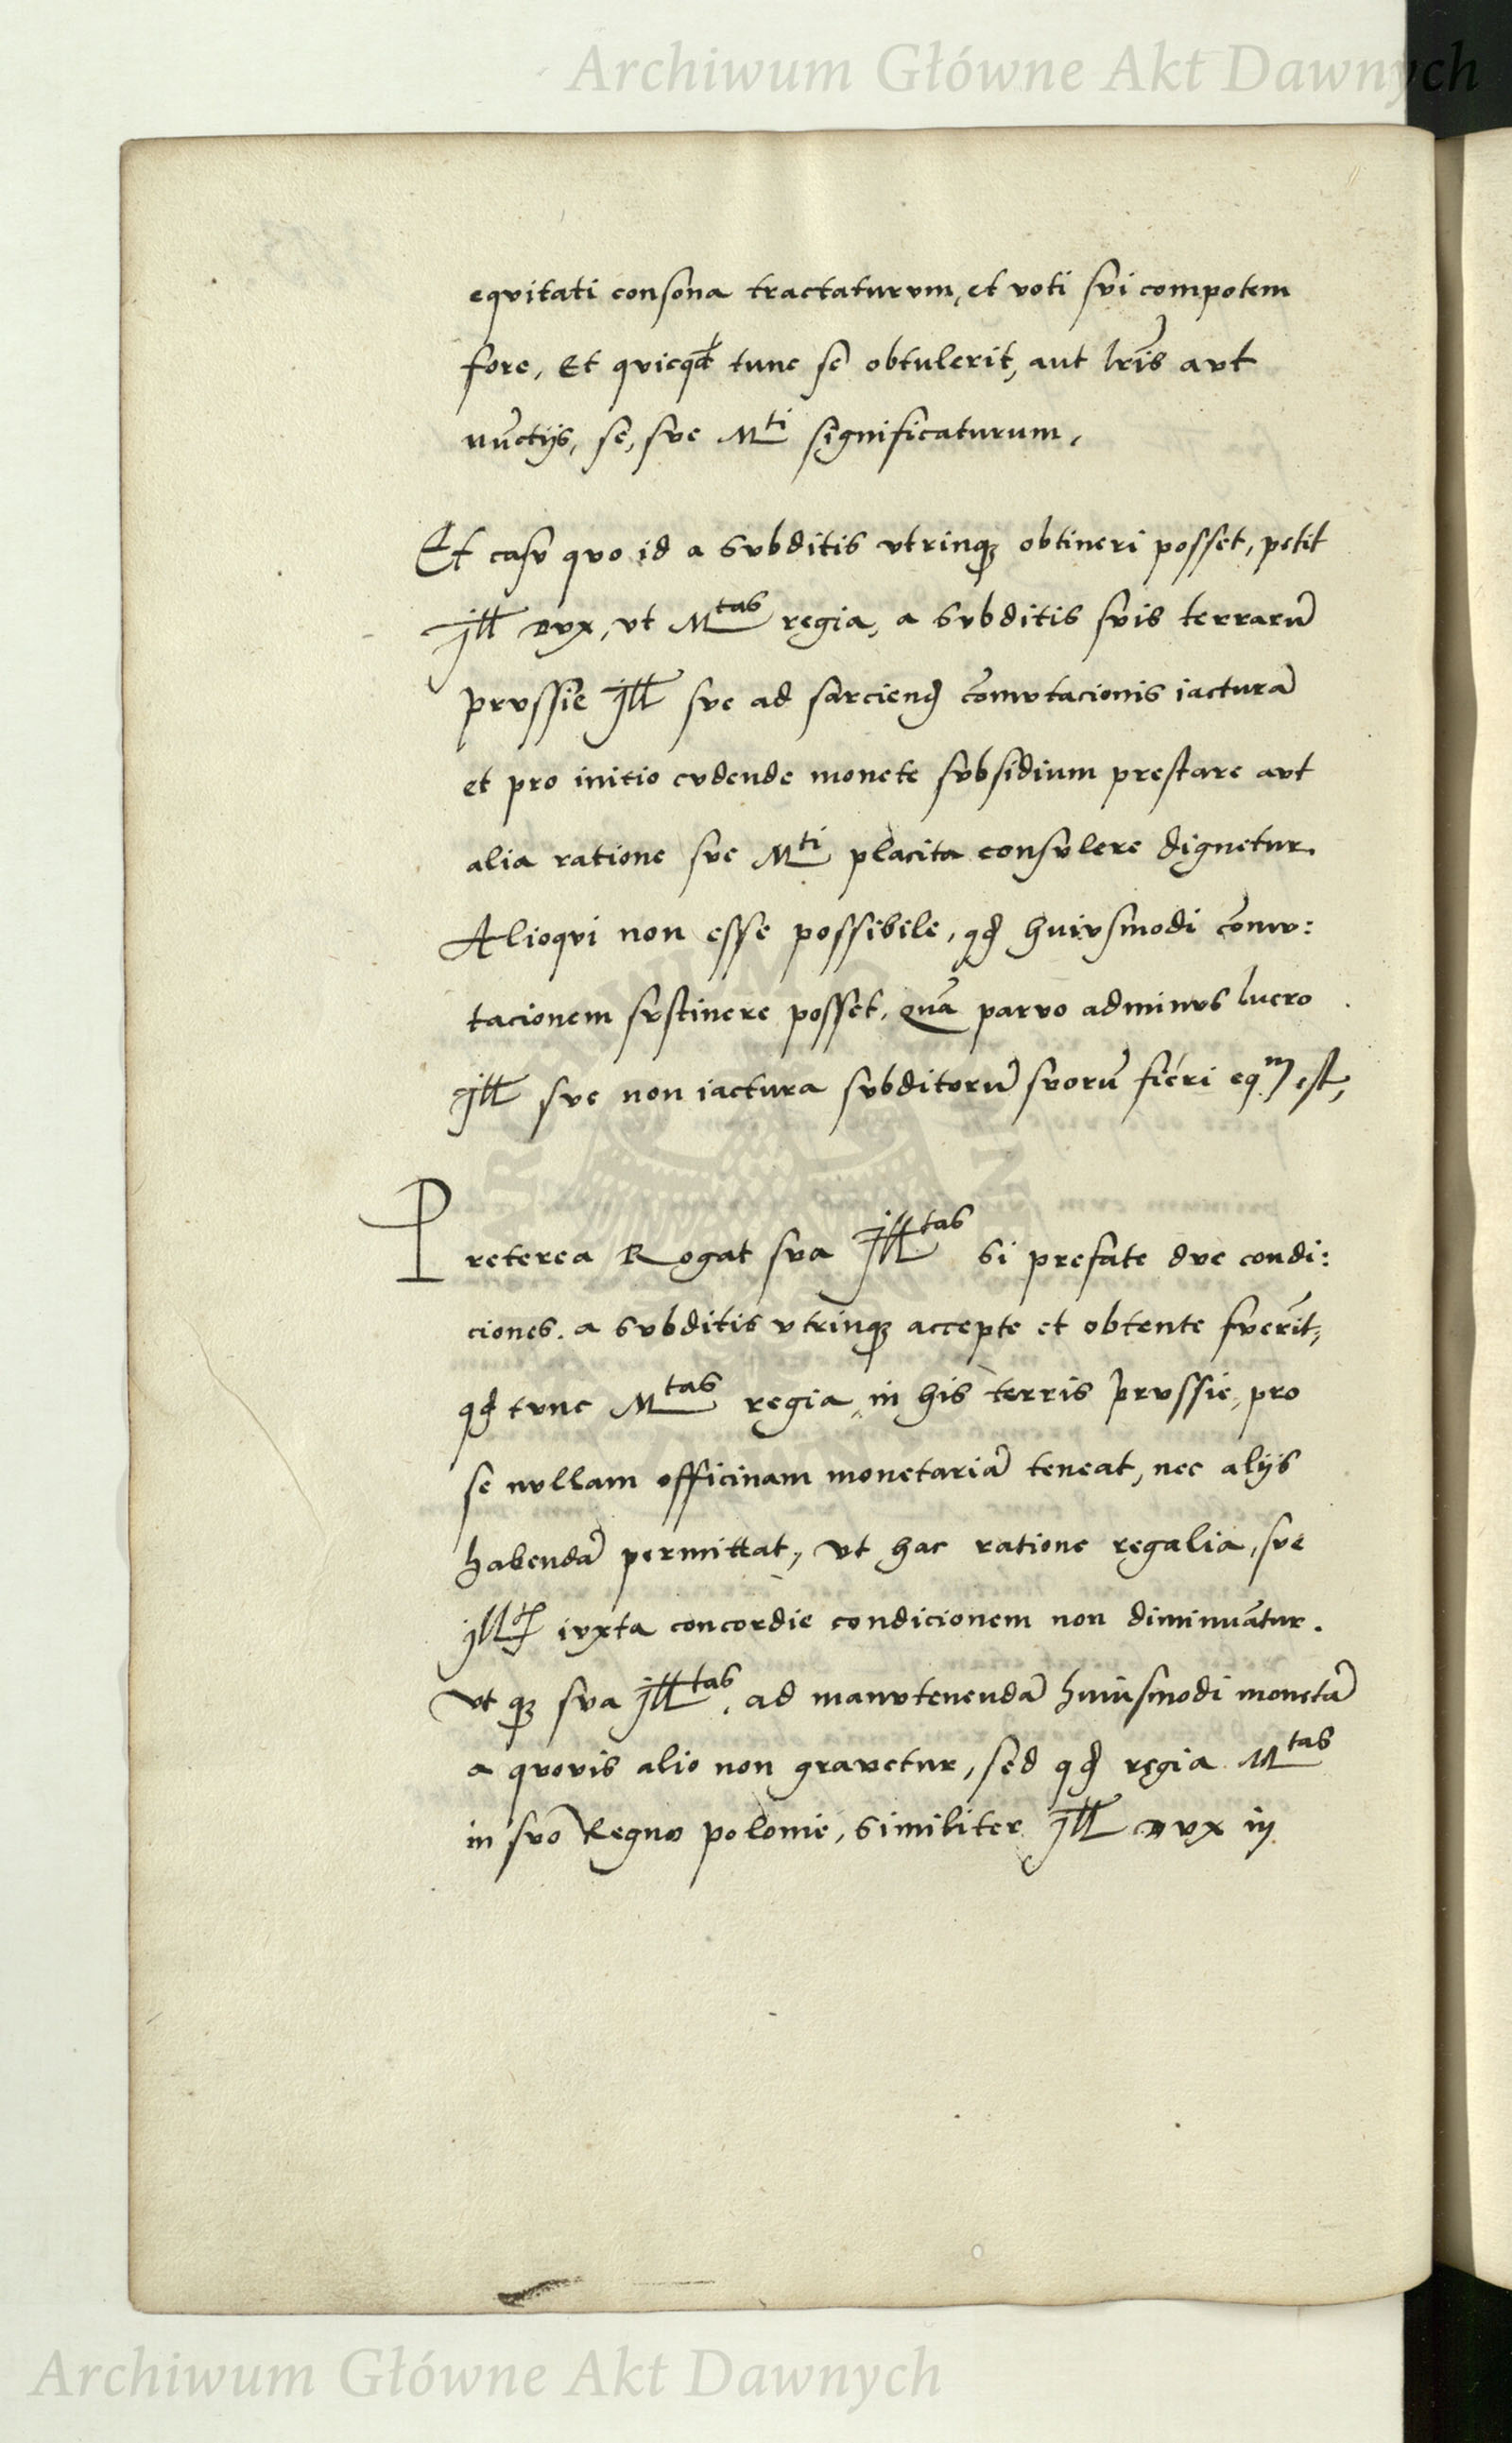 Archiwum Główne Akt Dawnych
eqvitati consona tractaturvm, et voti svi compotem
fore, Et qvicqd tunc se obtulerit, aut lr̃is avt
nv̄ctijs, se, sve Mti significaturum,
Et casv qvo id a svbditis vtrinqꝫ obtineri posset, petit
Jll Dvx, vt Mtas regia, a svbditis svis terrarū
prvssie Jll sve ad sarciend cōmvtacionis iacturā
et pro initio cvdende monete svbsidium prestare avt
alia ratione sve Mti placita consvlere dignetur.
Alioqvi non esse possibile, qd hvivsmodi cōmv:
tacionem svstinere posset, Qvā parvo adminvs lucro
Jll sve non iactura svbditorū svorū fieri eqm est,
Preterea Rogat sva Jlltas si prefate dve condi:
ciones. a svbditis vtrinqꝫ accepte et obtente fverīt,
qd tvnc Mtas regia, in his terris prvssie, pro
se nvllam officinam monetariā teneat, nec alijs
habendā permittat, vt hac ratione regalia, sve
Jll ivxta concordie condicionem non diminvātur.
Vt qꝫ sva Jlltas. ad manvtenendā huiusmodi monetā
a qvovis alio non gravetur, sed qd regia Mtas
in svo Regno polonie, similiter Jll Dvx in
Archiwum Główne Akt Dawnych